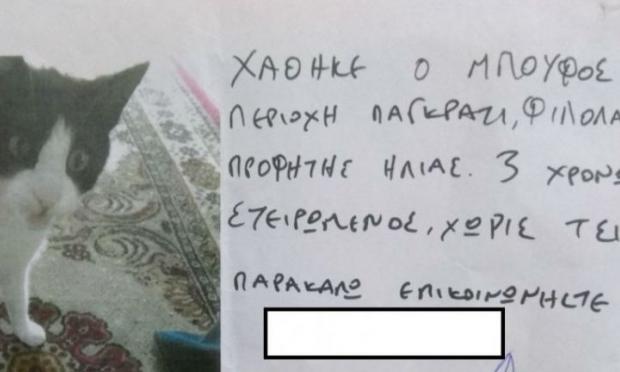 ΧΑΘΗΚΕ Ο ΜΠΟΥΦΟΣ
ΠΕΡΙΟΧΗ ΠΑΓΚΡΑΤΙ, ΦΙΛΟΛΑ
ΠΡΟΦΗΤΗΣ ΗΛΙΑΣ. 3 ΧΡΟΝΩ
ΣΤΕΙΡΩΜΕΝΟΣ, ΧΩΡΙΣ ΤΣΙ
ΠΑΡΑΚΑΛΩ ΕΠΙΚΟΙΝΩΝΗΣΤΕ